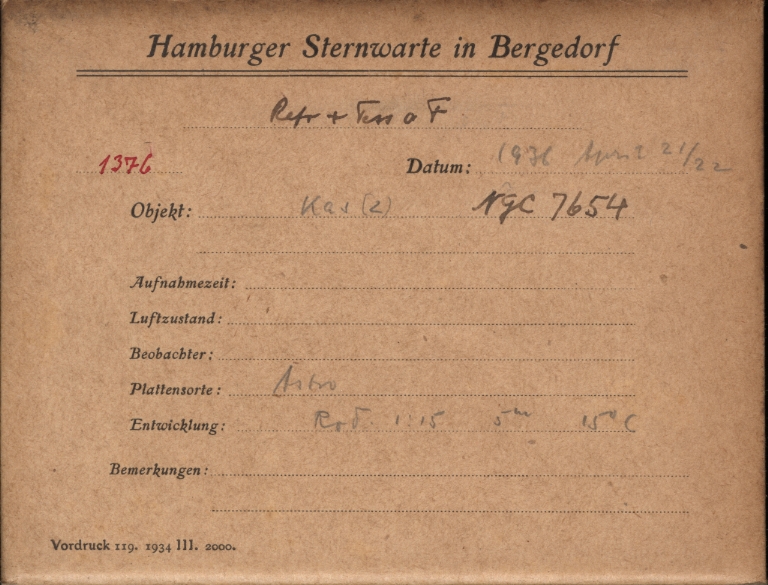 Hamburger Sternwarte in Bergedorf
Refr + Tess a F
1376 Datum: 1936 April 21/22
Objekt: Kas (2) NGC 7654
Aufnahmezeit:
Luftzustand:
Beobachter:
Plattensorte: Astro
Entwicklung: Rod. 1:15 5m 15°C
Bemerkungen:
Vordruck 119. 1934 III. 2000.